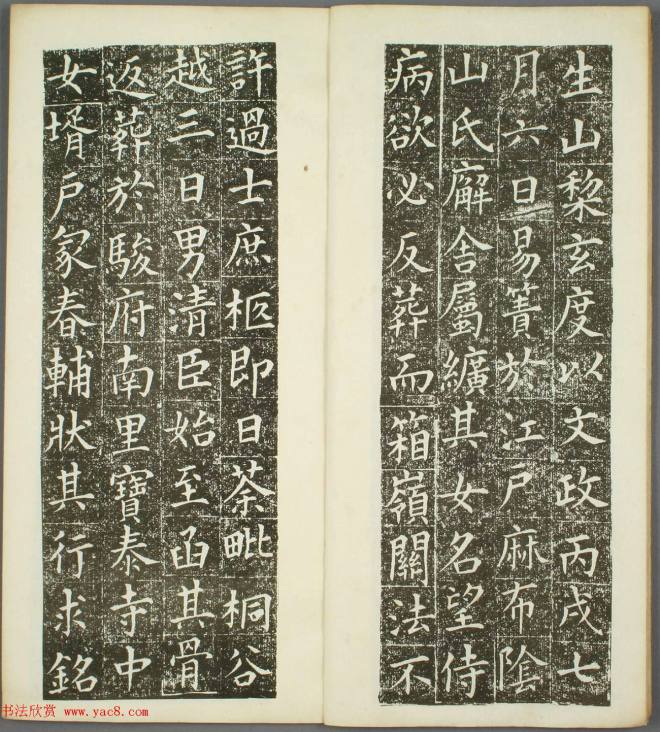 生山棃玄度以文政丙戌七
月六日易簀於江戶麻布陰
山氏廨舍屬纊其女名望侍
病欲必反葬而箱嶺關法不
許過士庶柩即日荼毗桐谷
越三日男清臣始至函其骨
返葬於駿府南里寶泰寺中
女壻戶冢春輔狀其行求銘
书法欣赏 www.yac8.com